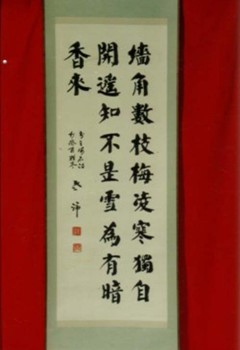 墻角數枝梅凌寒獨自
開遥知不是雪為有暗
香來